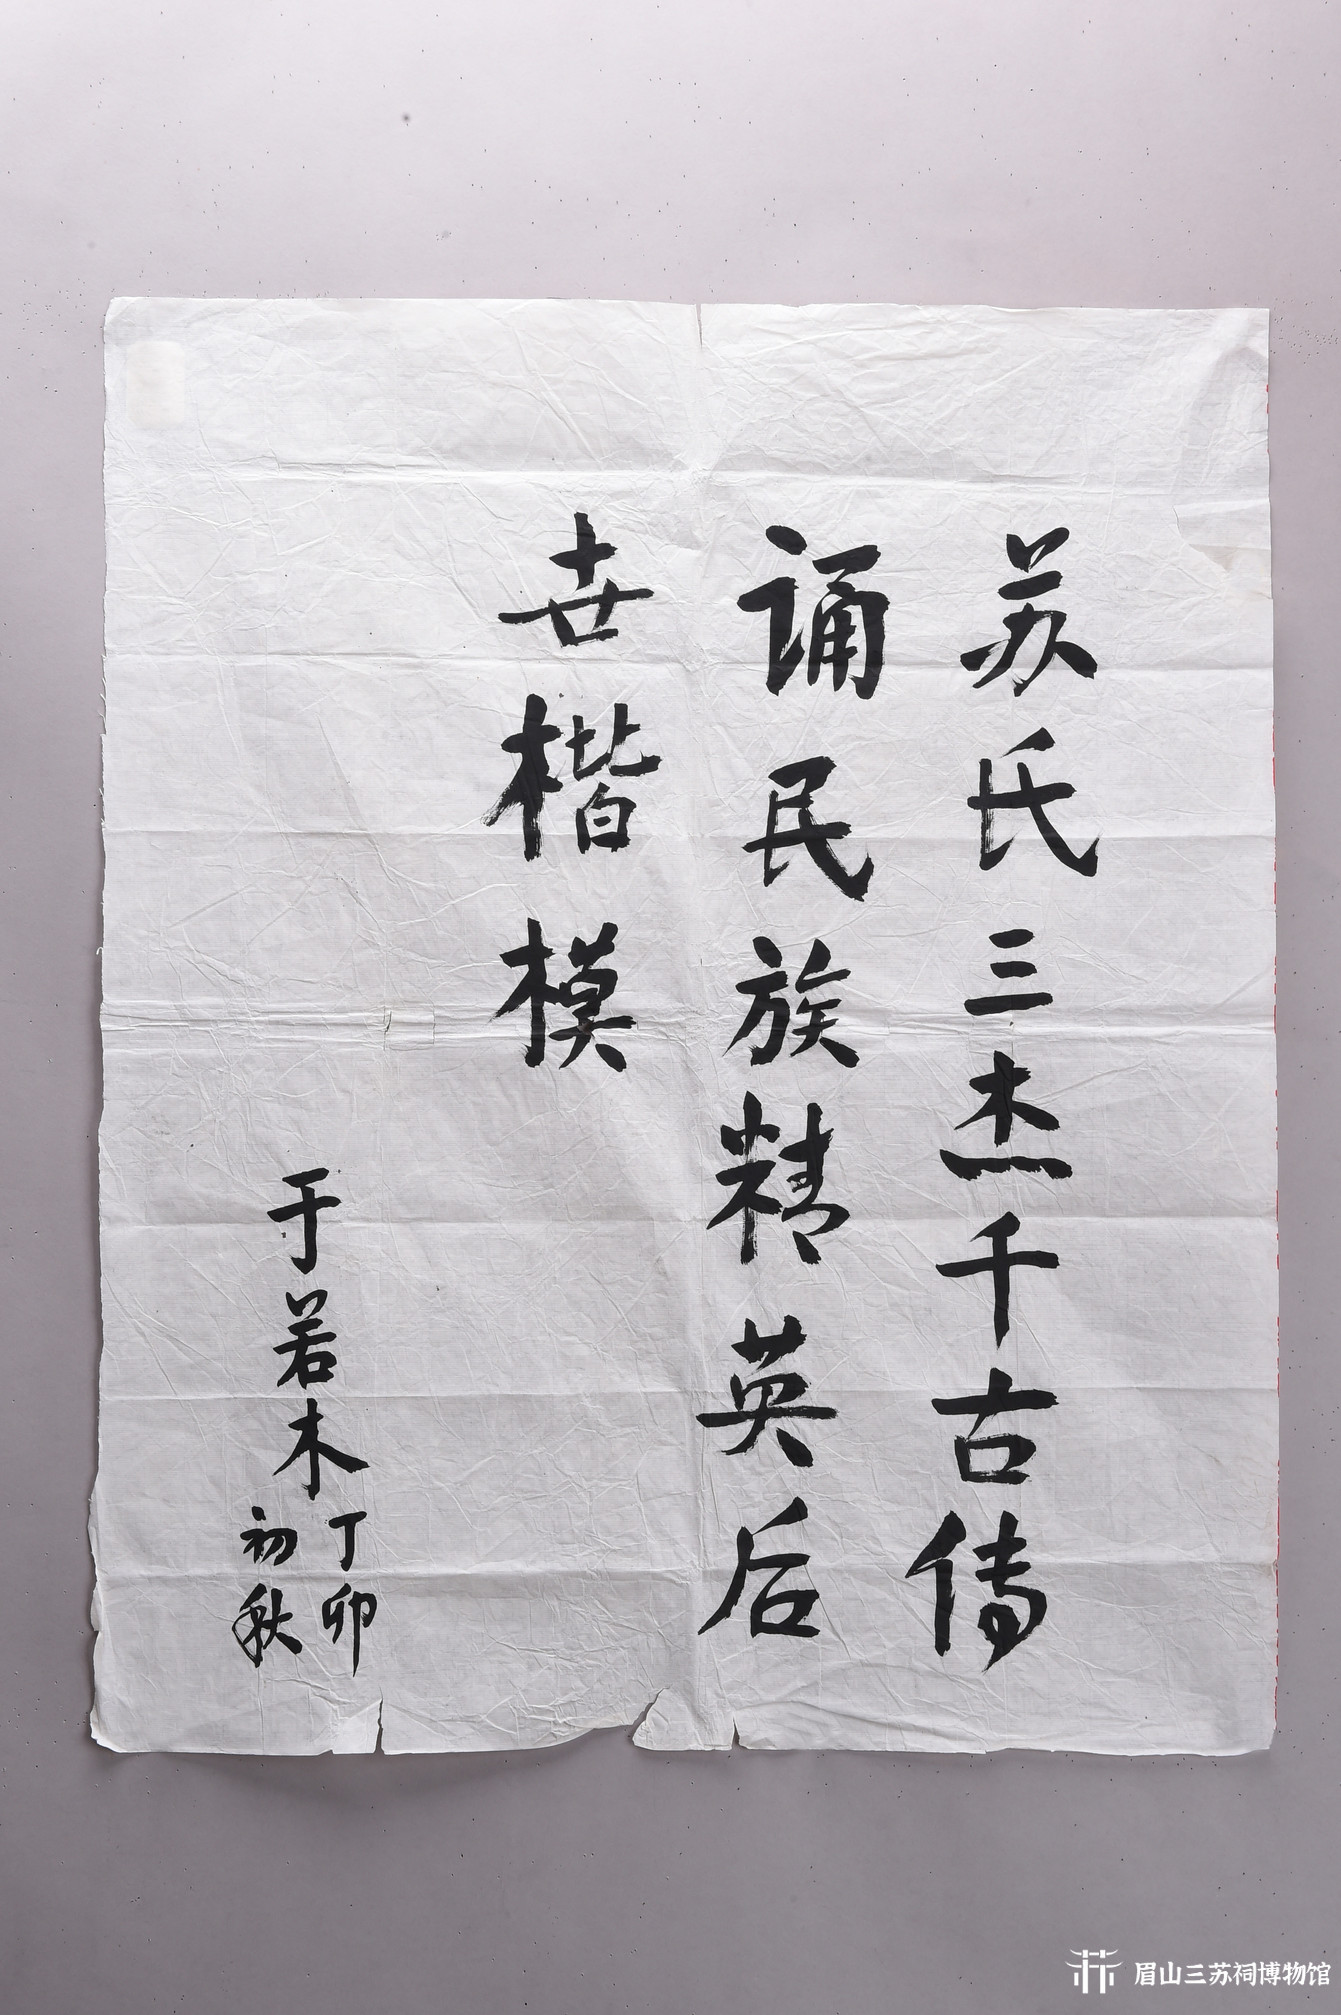 苏氏三杰千古传
诵民族精英后
世楷模
于若木
丁卯
初秋
眉山三苏祠博物馆